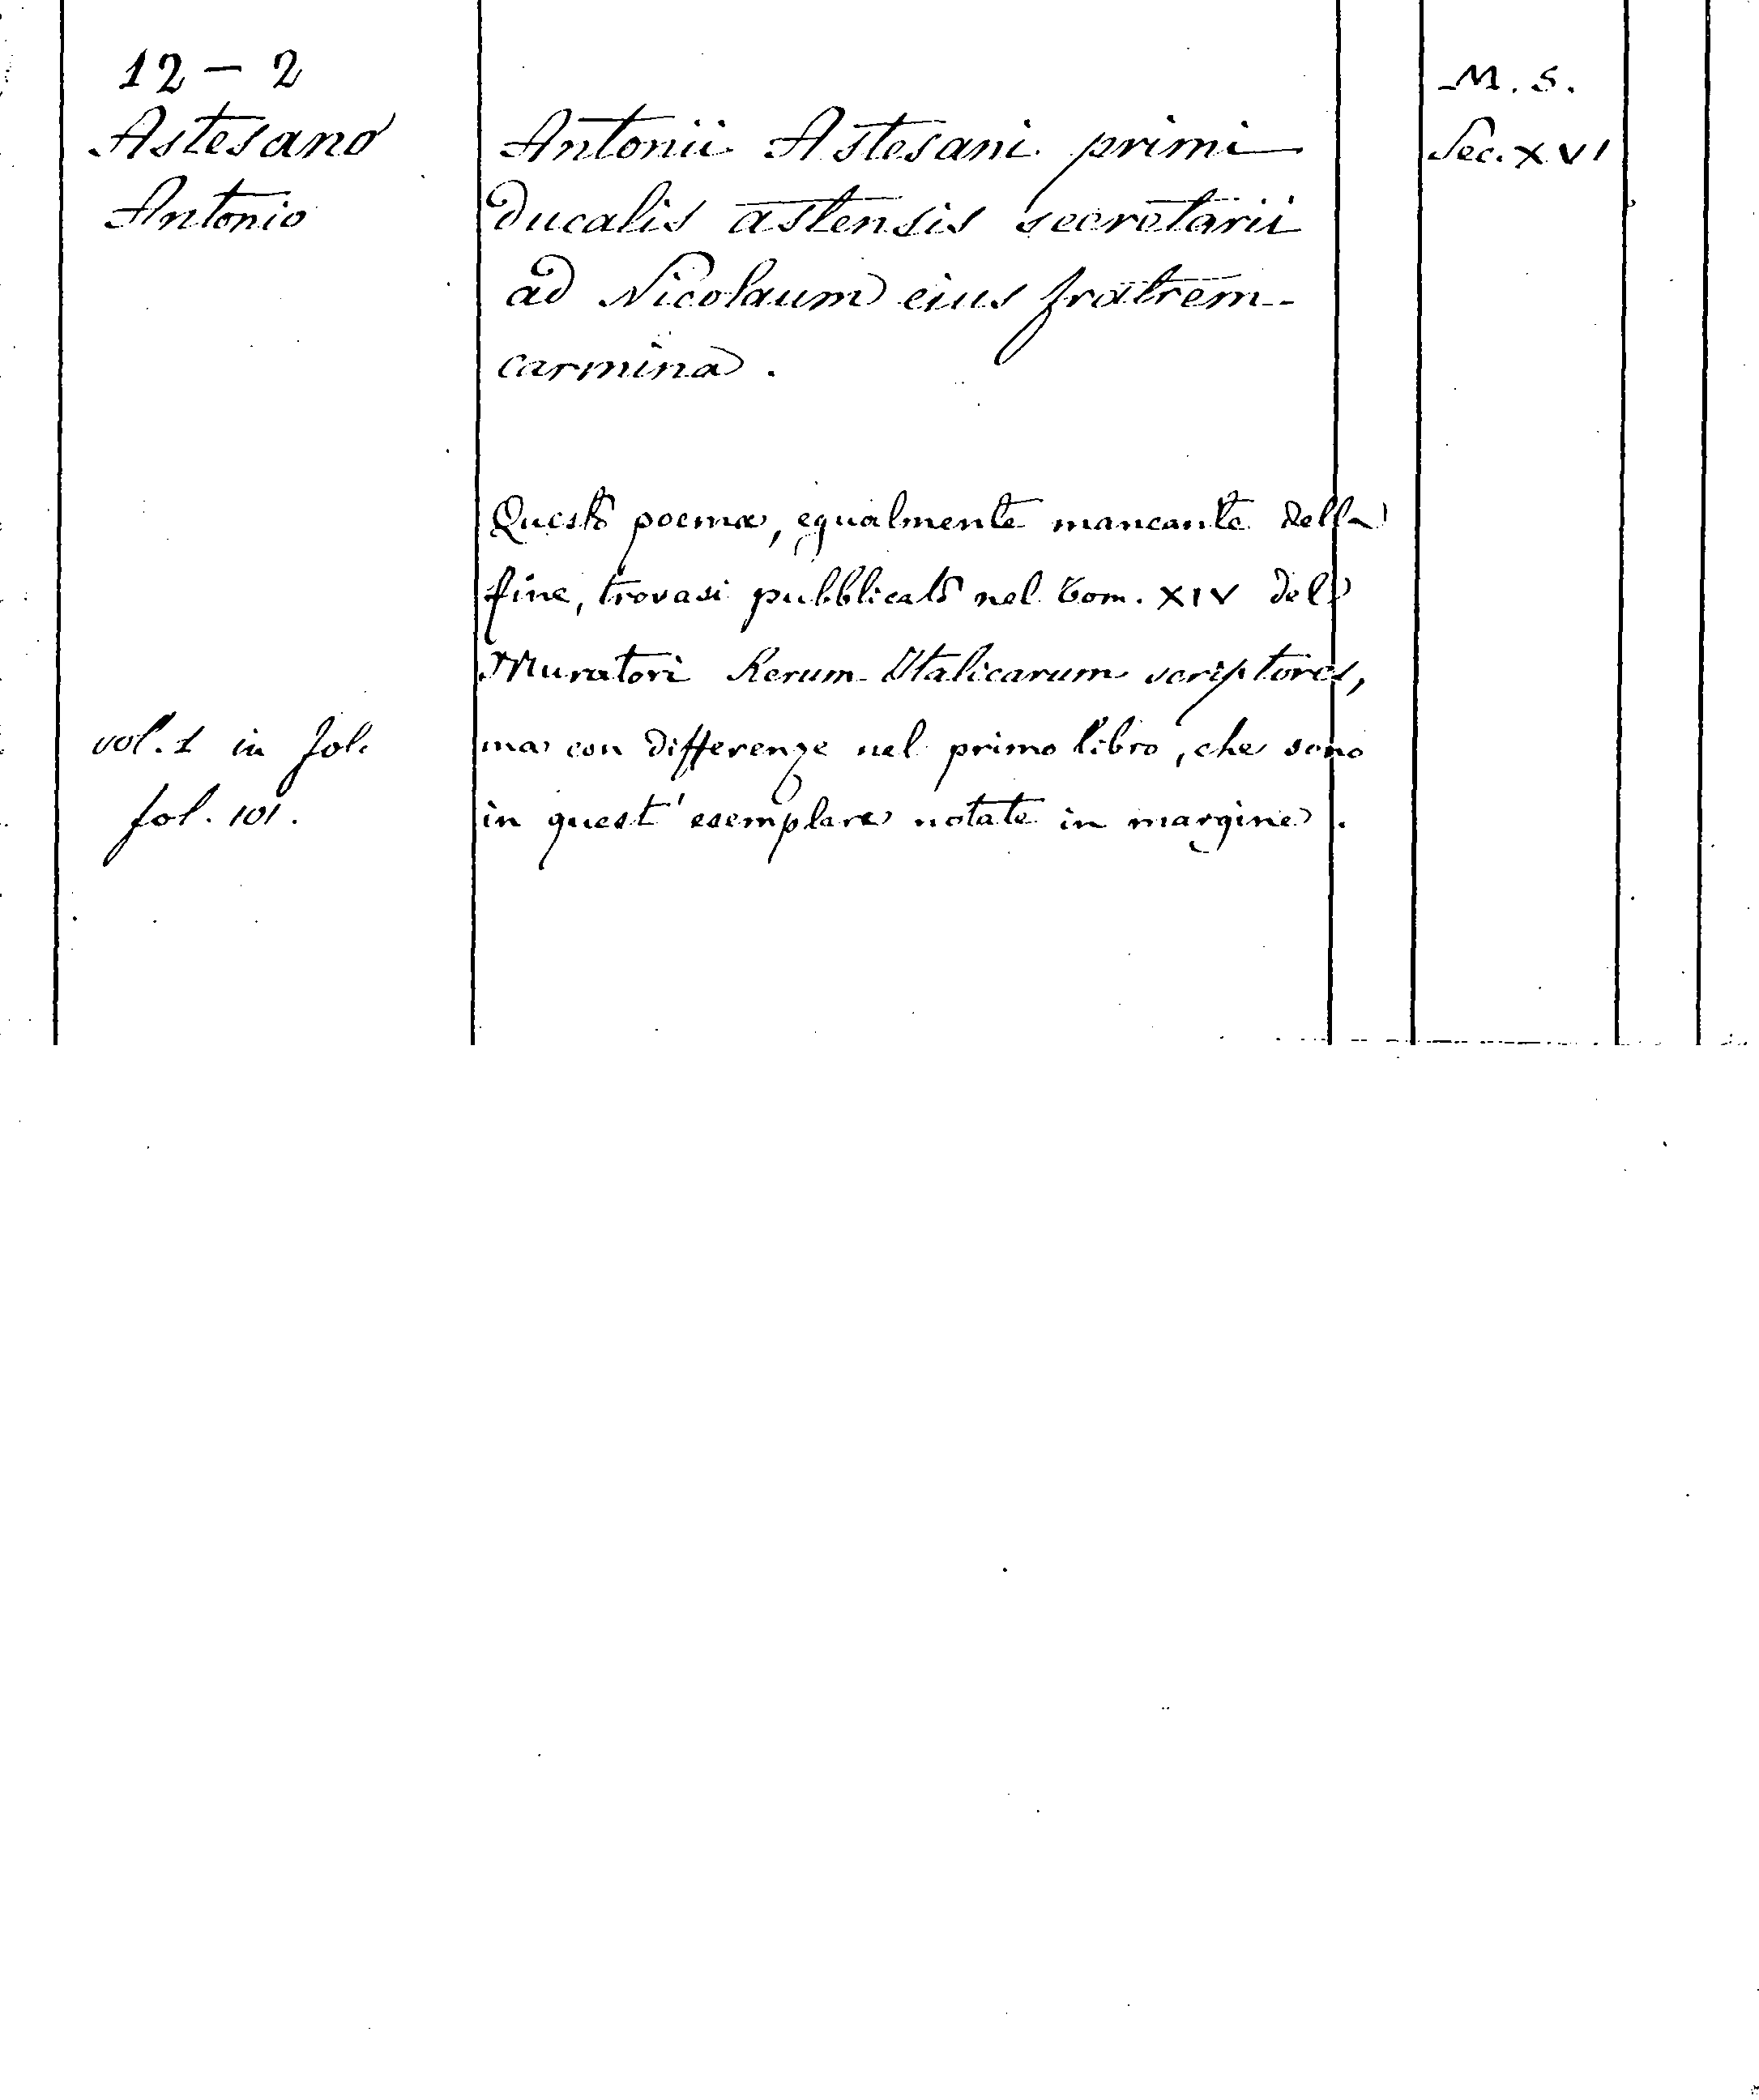 12 - 2
Astesano
Antonio
vol. 1 in fol.
fol. 101.
Antonii Astesani primi
ducalis astensis secretarii
ad Nicolaum eius fratrem
carmina.
Questo poema, egualmente mancante della
fine, trovasi pubblicato nel Tom. XIV del
Muratori Rerum Italicarum scriptores,
ma con differenze nel primo libro, che sono
in quest' esemplare notate in margine.
M. S.
Sec. XVI